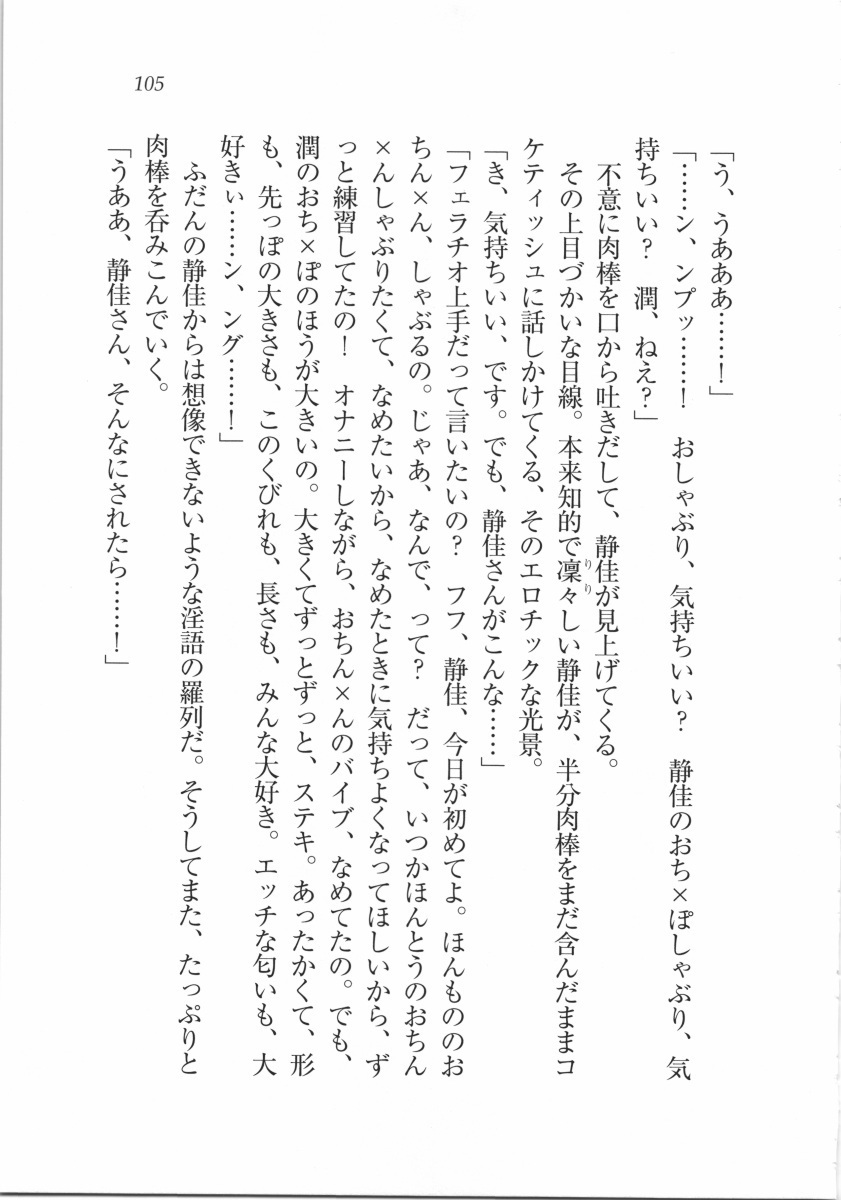 「う、うあああ……！」
「……ン、ンプッ……！　おしゃぶり、気持ちいい？　静佳のおち×ぽしゃぶり、気
持ちいい？　潤、ねえ？」
　不意に肉棒を口から吐きだして、静佳が見上げてくる。
　その上目づかいな目線。本来知的で凜々しい静佳が、半分肉棒をまだ含んだままコ
ケティッシュに話しかけてくる、そのエロチックな光景。
「き、気持ちいい、です。でも、静佳さんがこんな……」
「フェラチオ上手だって言いたいの？　フフ、静佳、今日が初めてよ。ほんもののお
ちん×ん、しゃぶるの。じゃあ、なんで、って？　だって、いつかほんとうのおちん
×んしゃぶりたくて、なめたいから、なめたときに気持ちよくなってほしいから、ず
っと練習してたの！　オナニーしながら、おちん×んのバイブ、なめてたの。でも、
潤のおち×ぽのほうが大きいの。大きくてずっとずっと、ステキ。あったかくて、形
も、先っぽの大きさも、このくびれも、長さも、みんな大好き。エッチな匂いも、大
好きぃ……ン、ング……！」
　ふだんの静佳からは想像できないような淫語の羅列だ。そうしてまた、たっぷりと
肉棒を呑みこんでいく。
「うああ、静佳さん、そんなにされたら……！」
りり
105